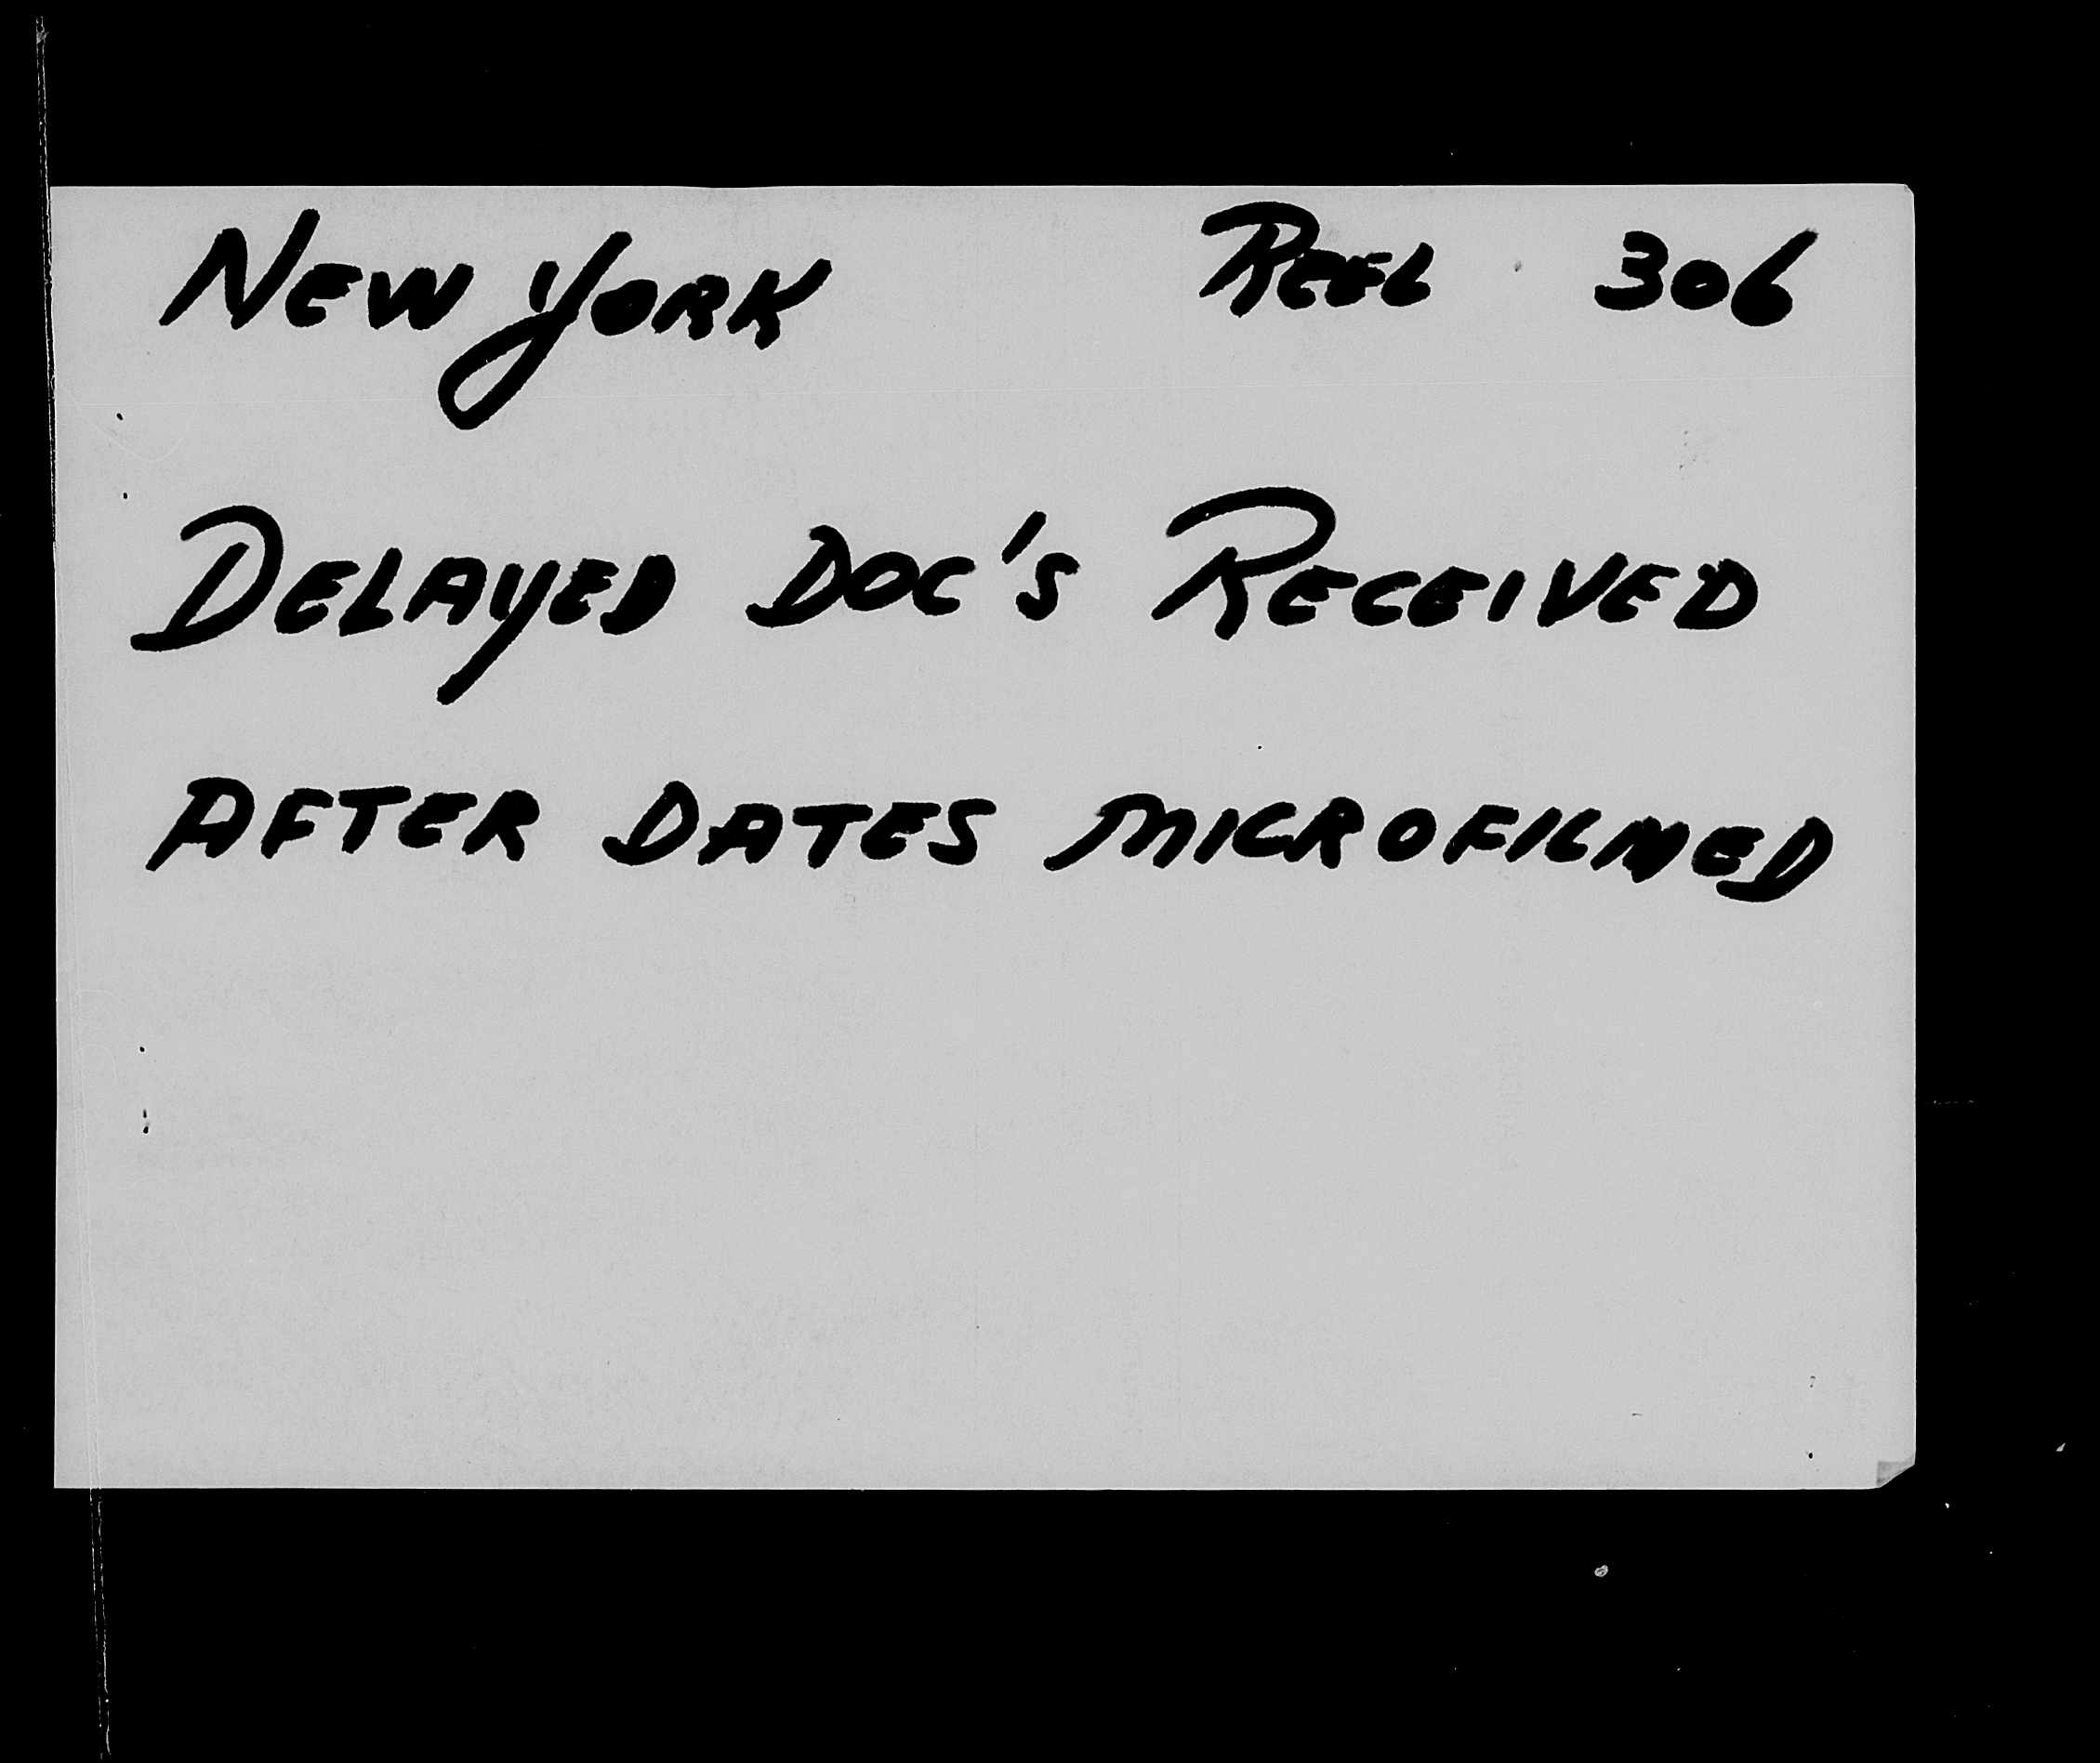 NEW YORK REEL 306
DELAYED DOC'S RECEIVED
AFTER DATES MICROFILMED